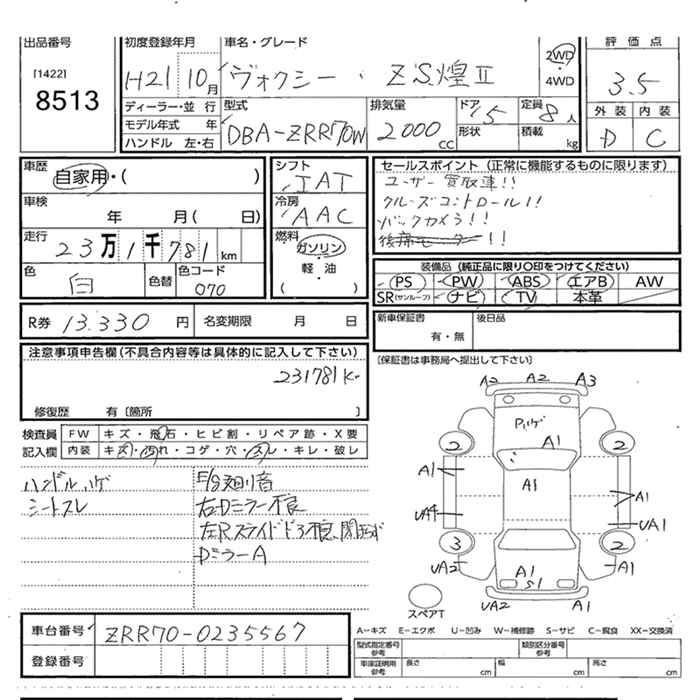 出品番号
[1422]
8513
初度登録年月
H21 10月
車名・グレード
ヴォクシー・ZS煌II
2WD
・
4WD
評価点
3.5
外装 内装
D C
ディーラー・並行
モデル年式 年
ハンドル 左・右
型式
DBA-ZRR70W
排気量
2000cc
ドア
5
形状
定員
8人
積載
kg
車歴
自家用・( )
車検
年 月( 日)
走行
23万1千781km
色
白
色替
色コード
070
シフト
IAT
冷房
AAC
燃料
ガソリン
・
軽・油
( )
セールスポイント (正常に機能するものに限ります)
ユーザー買取車!!
クルーズコントロール!!
バックカメラ!!
後席モニター!!
装備品 (純正品に限り○印をつけてください)
PS PW ABS エアB AW
SR(サンルーフ) ナビ TV 本革
R券 13.330 円 名変期限 月 日
新車保証書
有・無
後日品
[保証書は事務局へ提出して下さい]
注意事項申告欄(不具合内容等は具体的に記入して下さい)
231781K
修復歴 有[箇所 ]
検査員
記入欄
FW キズ・飛石・ヒビ割・リペア跡・X要
内装 キズ・汚れ・コゲ・穴・スレ・キレ・破レ
ハンドルハゲ
シートスレ
E/G廻り音
右Dミラー不良
左Rスライドドア不良、
DミラーA
A2 A2 A3
Pハゲ
2 2
A1
A1
A1
A1
UA4
UA1
3 2
UA2
A1
A1
S1
UA2
A1
スペアT
A−キズ E−エクボ U−凹み W−補修跡 S−サビ C−腐食 XX−交換済
車台番号 ZRR70-0235567
登録番号
型式指定番号
参考
類別区分番号
参考
車庫証明用
参考
長さ cm 幅 cm 高さ cm